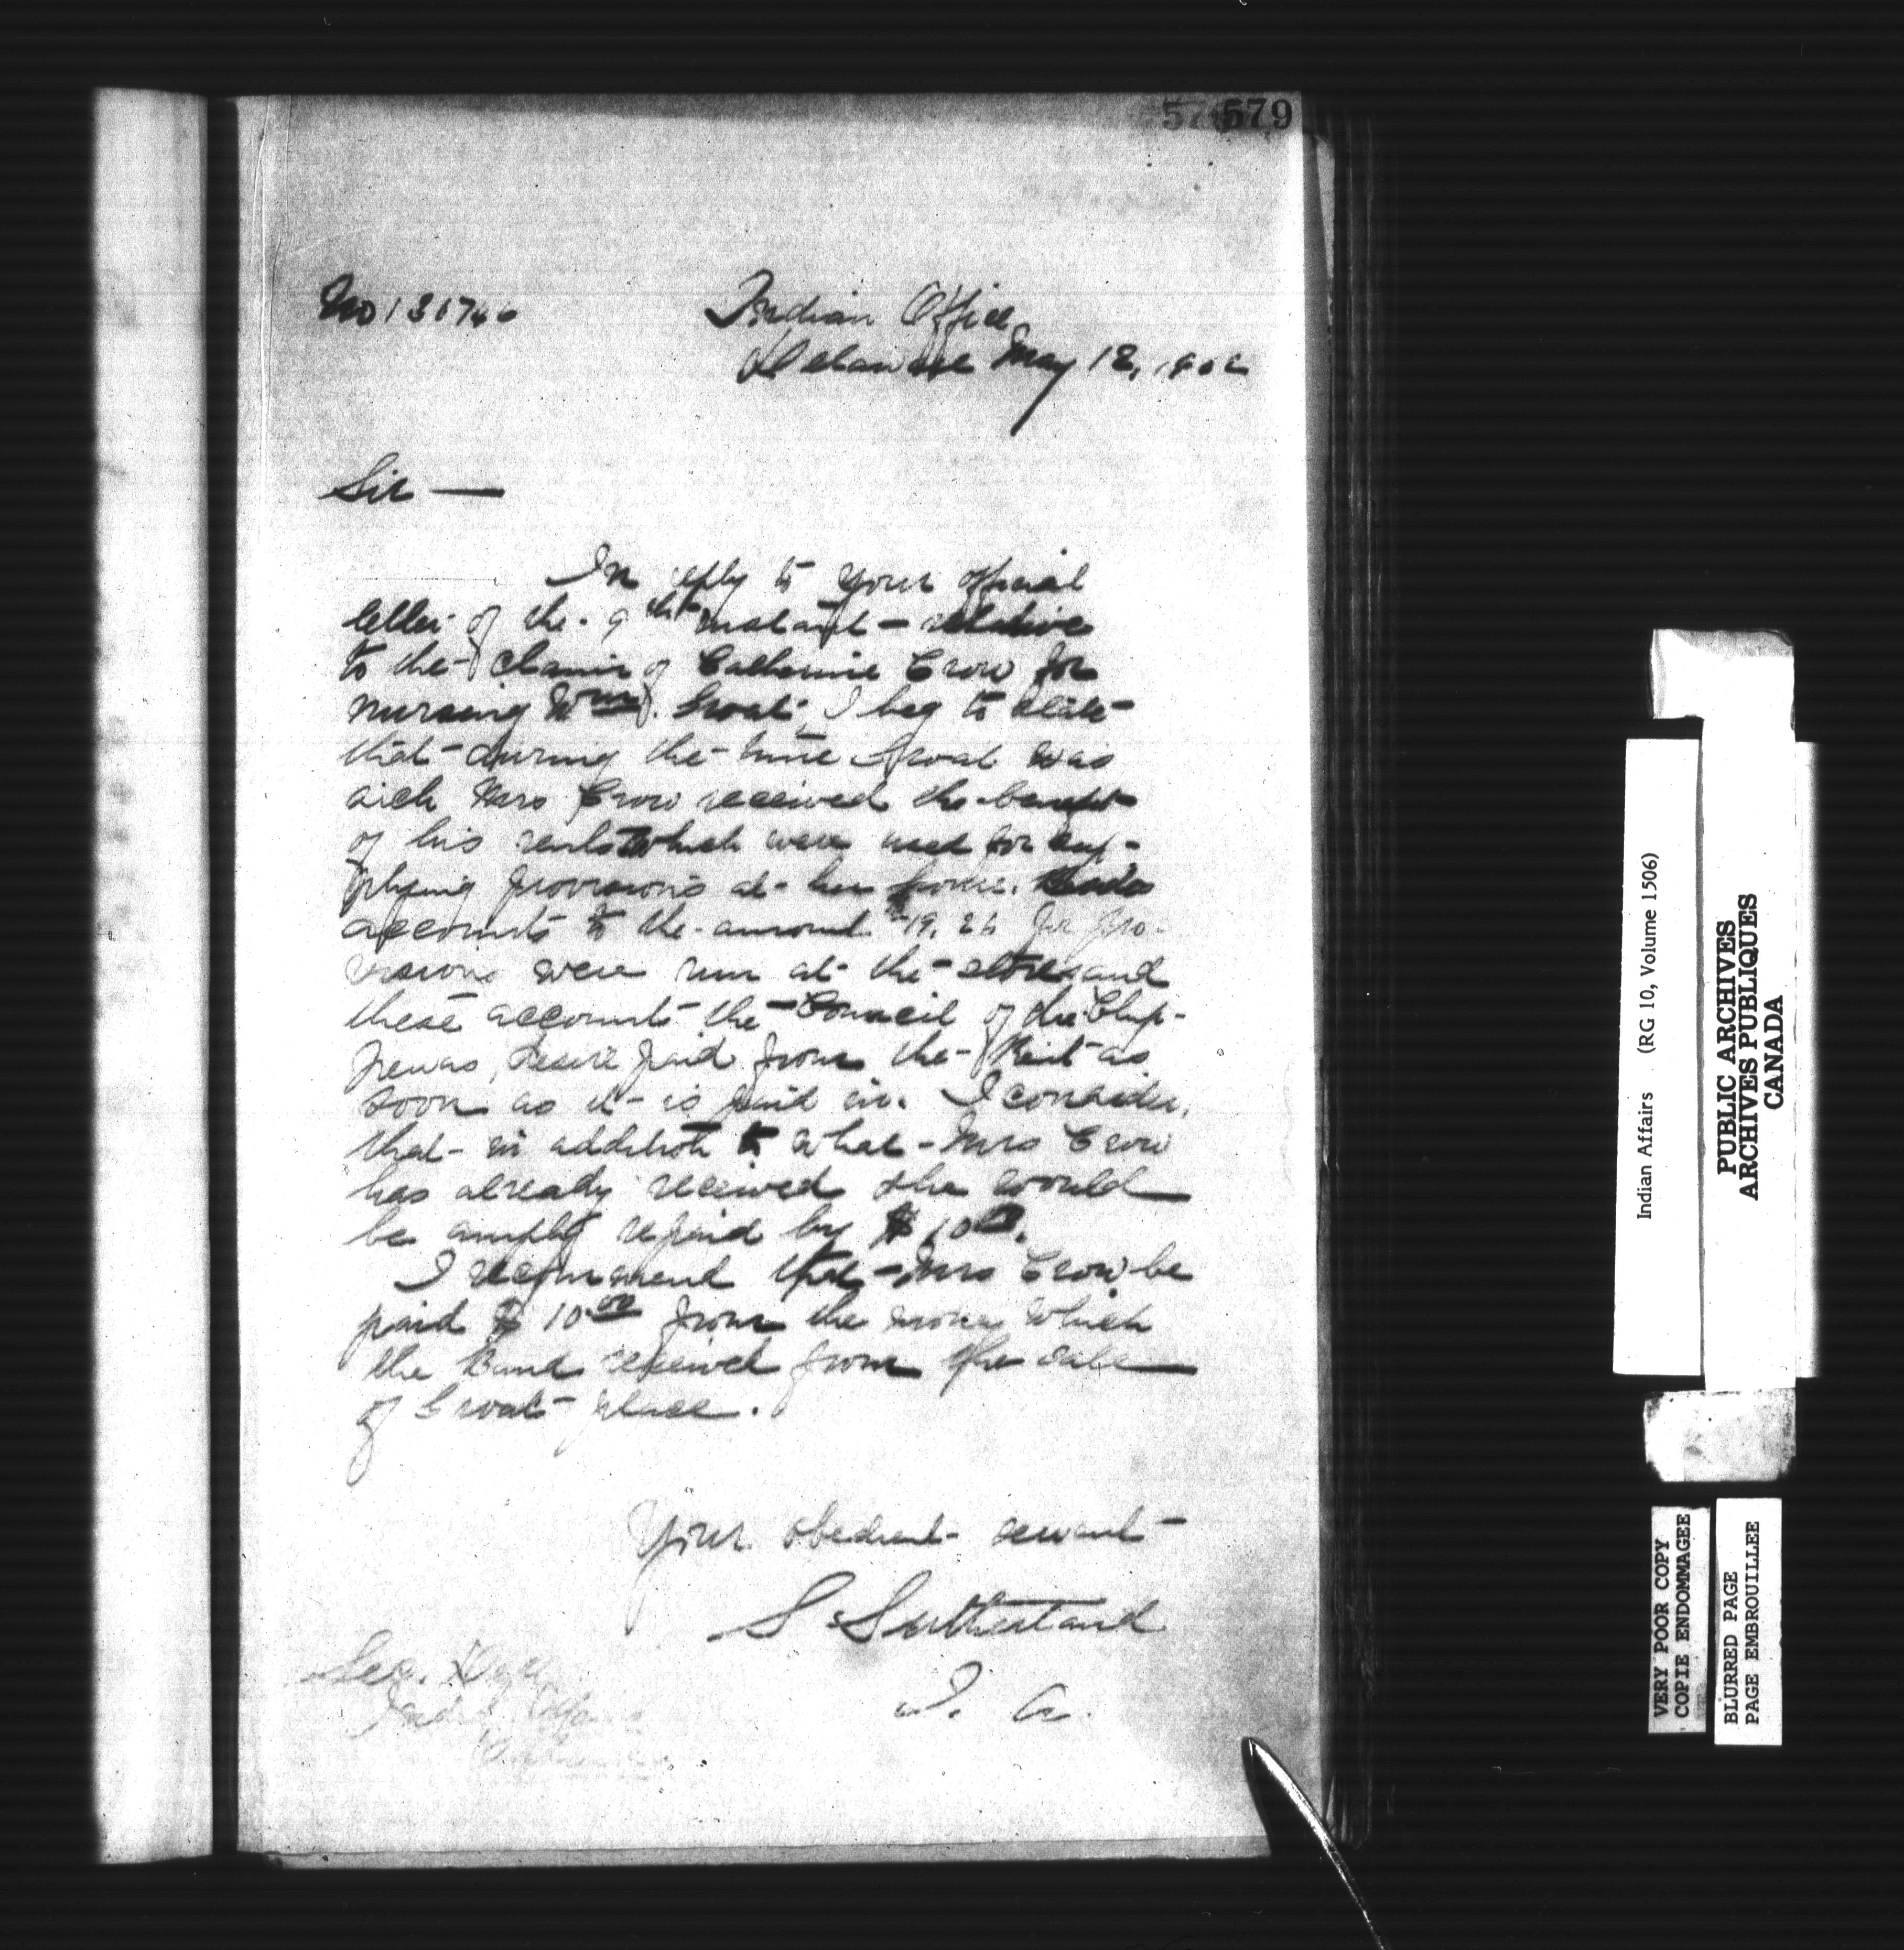 579
No 130740
Indian Office
Delaware May 12, 1902
Sir —
In reply to your official
letter of the 9th instant - relative
to the claim of Catherine Crow for
nursing Wm. Groat, I beg to state
that during the time Groat was
sick Mrs Crow received the benefit
of his rents which were used for sup-
plying provisions at her home.
accounts to the amount 19. for pro-
visions were run at the store and
these accounts the Council of the Chip-
pewas desire paid from the Rent as
soon as it is paid in. I consider,
that in addition to what Mrs Crow
has already received she would
be amply repaid by $10.00.
I recommend that Mrs Crow be
paid $10.00 from the money which
the Band received from the sale
of Groat place.
Your obedient servant
S. Sutherland
I. A.
Sec. Dept.
Indian Affairs
Indian Affairs (RG 10, Volume 1506)
PUBLIC ARCHIVES
ARCHIVES PUBLIQUES
CANADA
VERY POOR COPY
COPIE ENDOMMAGEE
BLURRED PAGE
PAGE EMBROUILLEE